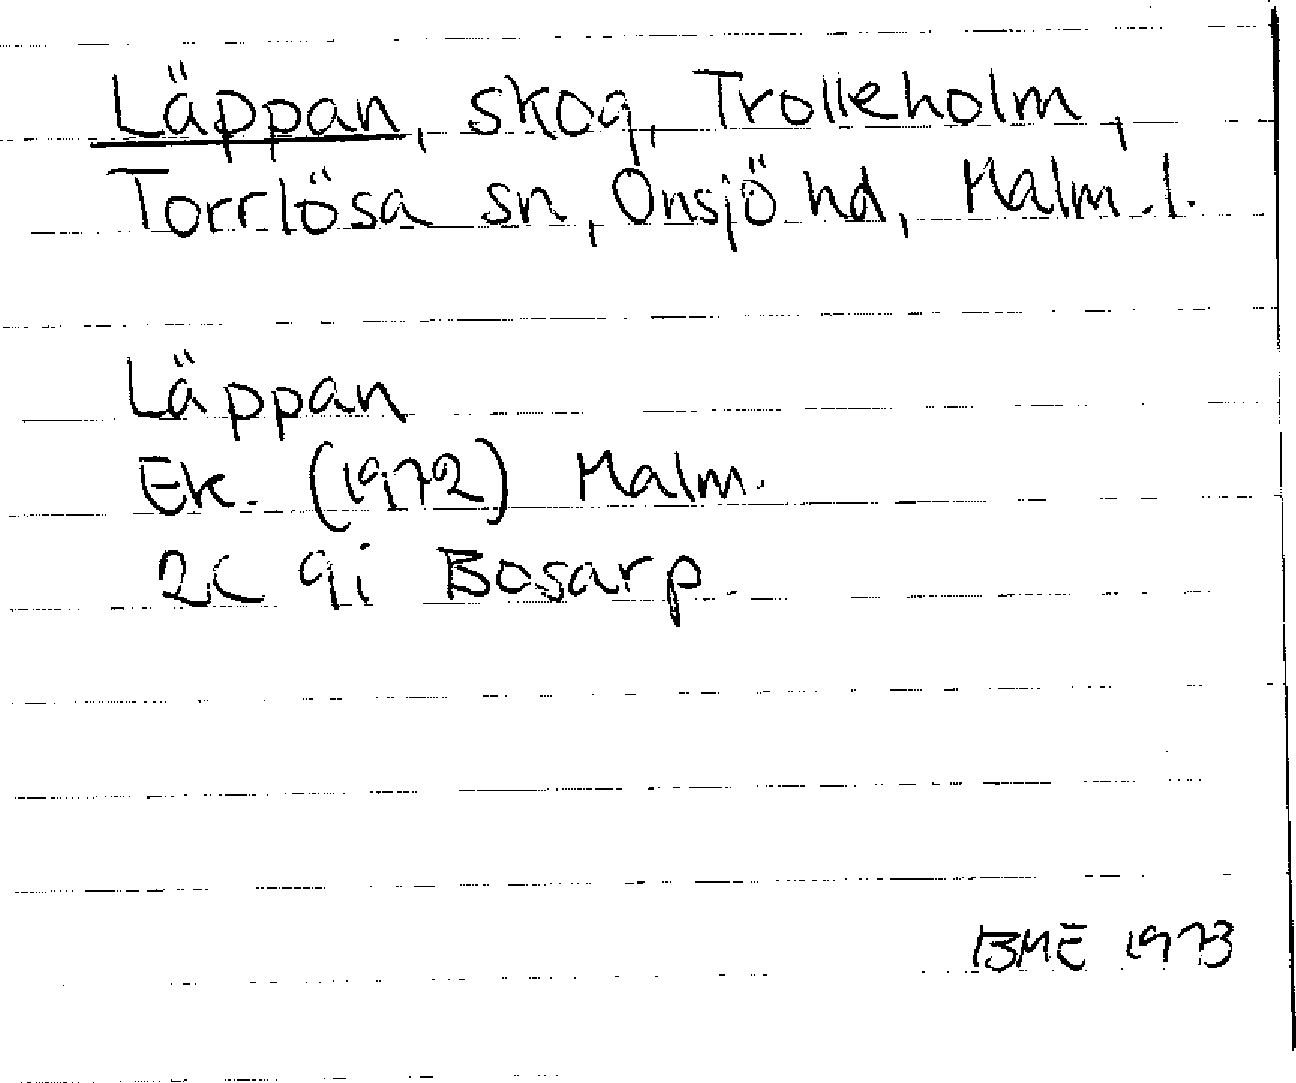 Läppan, skog, Trolleholm,
Torrlösa sn, Onsjö hd, Malm. l.
Läppan
Ek. (1972) Malm.
2C 9i Bosarp.
BME 1973